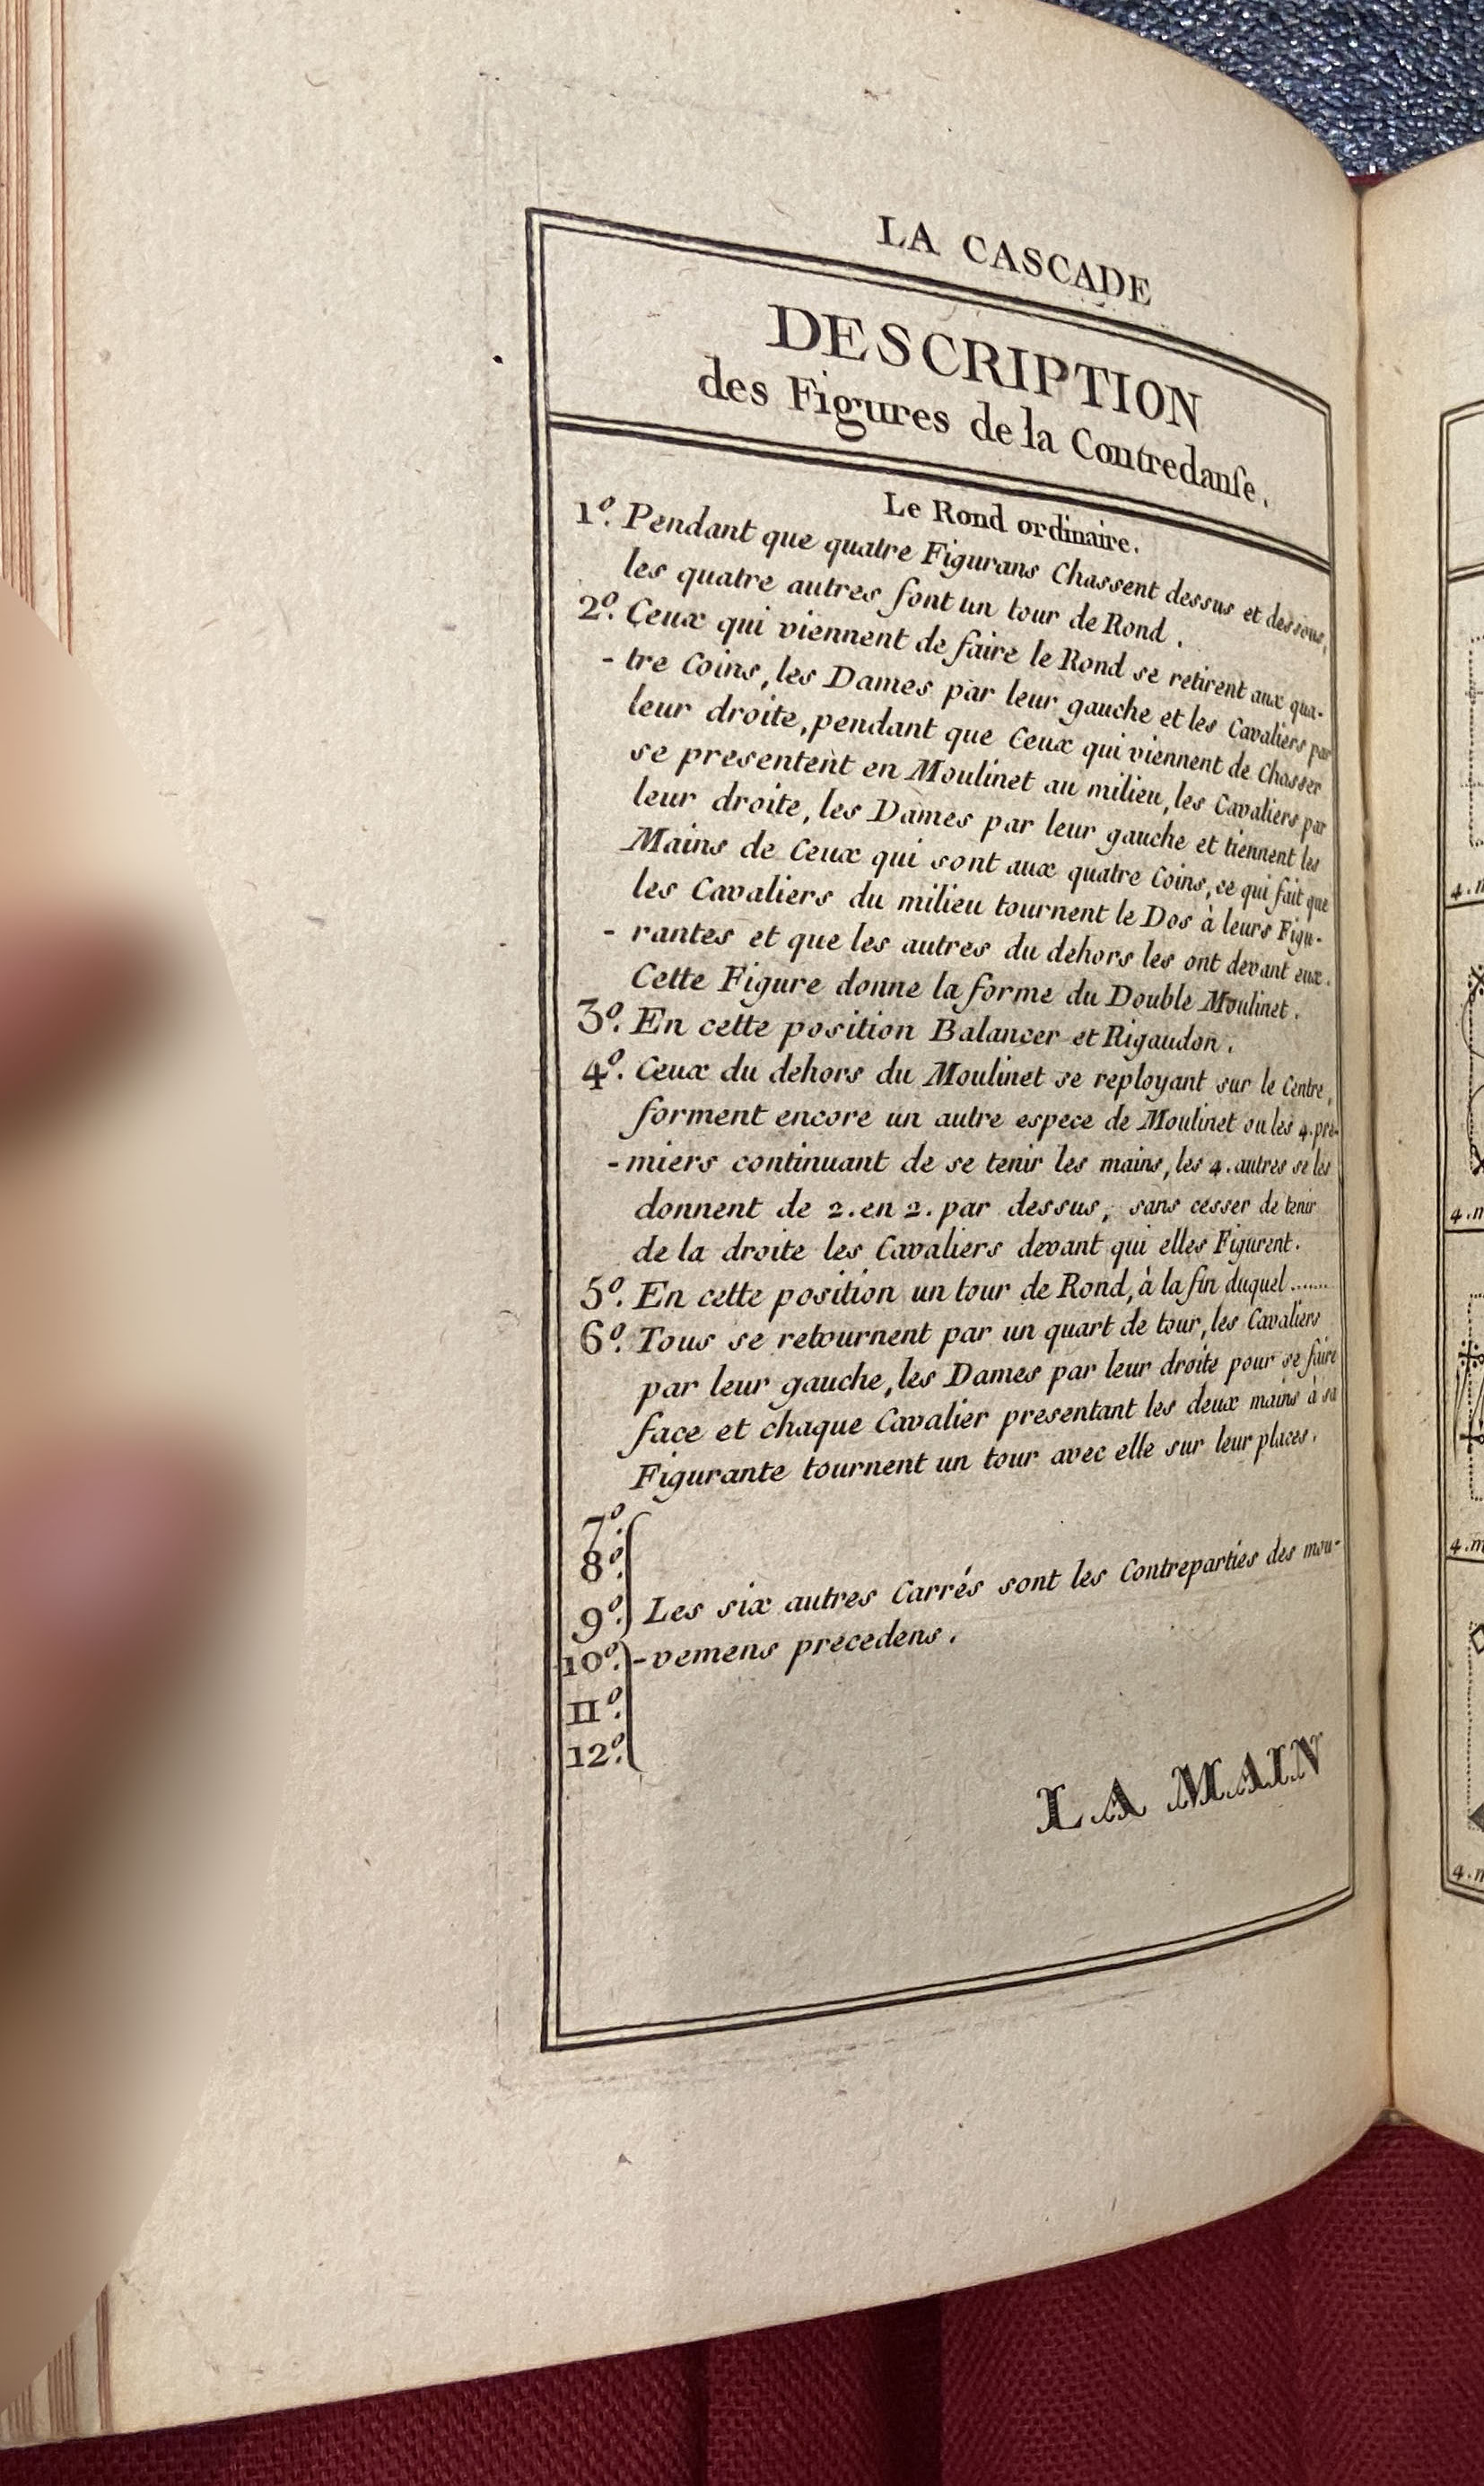 LA CASCADE
DESCRIPTION
des Figures de la Contredanſe.
Le Rond ordinaire.
1º. Pendant que quatre Figurans Chassent dessus et dessous,
les quatre autres font un tour de Rond.
2º. Ceux qui viennent de faire le Rond se retirent aux qua-
- tre Coins, les Dames par leur gauche et les Cavaliers par
leur droite, pendant que Ceux qui viennent de Chasser
se presentent en Moulinet au milieu, les Cavaliers par
leur droite, les Dames par leur gauche et tiennent les
Mains de Ceux qui sont aux quatre Coins, ce qui fait que
les Cavaliers du milieu tournent le Dos à leurs Figu-
- rantes et que les autres du dehors les ont devant eux.
Cette Figure donne la forme du Double Moulinet.
3º. En cette position Balancer et Rigaudon.
4º. Ceux du dehors du Moulinet se reployant sur le Centre,
forment encore un autre espece de Moulinet ou les 4. pre-
- miers continuant de se tenir les mains, les 4. autres se les
donnent de 2. en 2. par dessus, sans cesser de tenir
de la droite les Cavaliers devant qui elles Figurent.
5º. En cette position un tour de Rond, à la fin duquel.......
6º. Tous se retournent par un quart de tour, les Cavaliers
par leur gauche, les Dames par leur droite pour se faire
face et chaque Cavalier presentant les deux mains à sa
Figurante tournent un tour avec elle sur leur places.
7º.
8º.
9º. Les six autres Carrés sont les Contreparties des mou-
10º. - vemens precedens.
11º.
12º.
LA MAIN
4.m
4.m
4.m
4.m